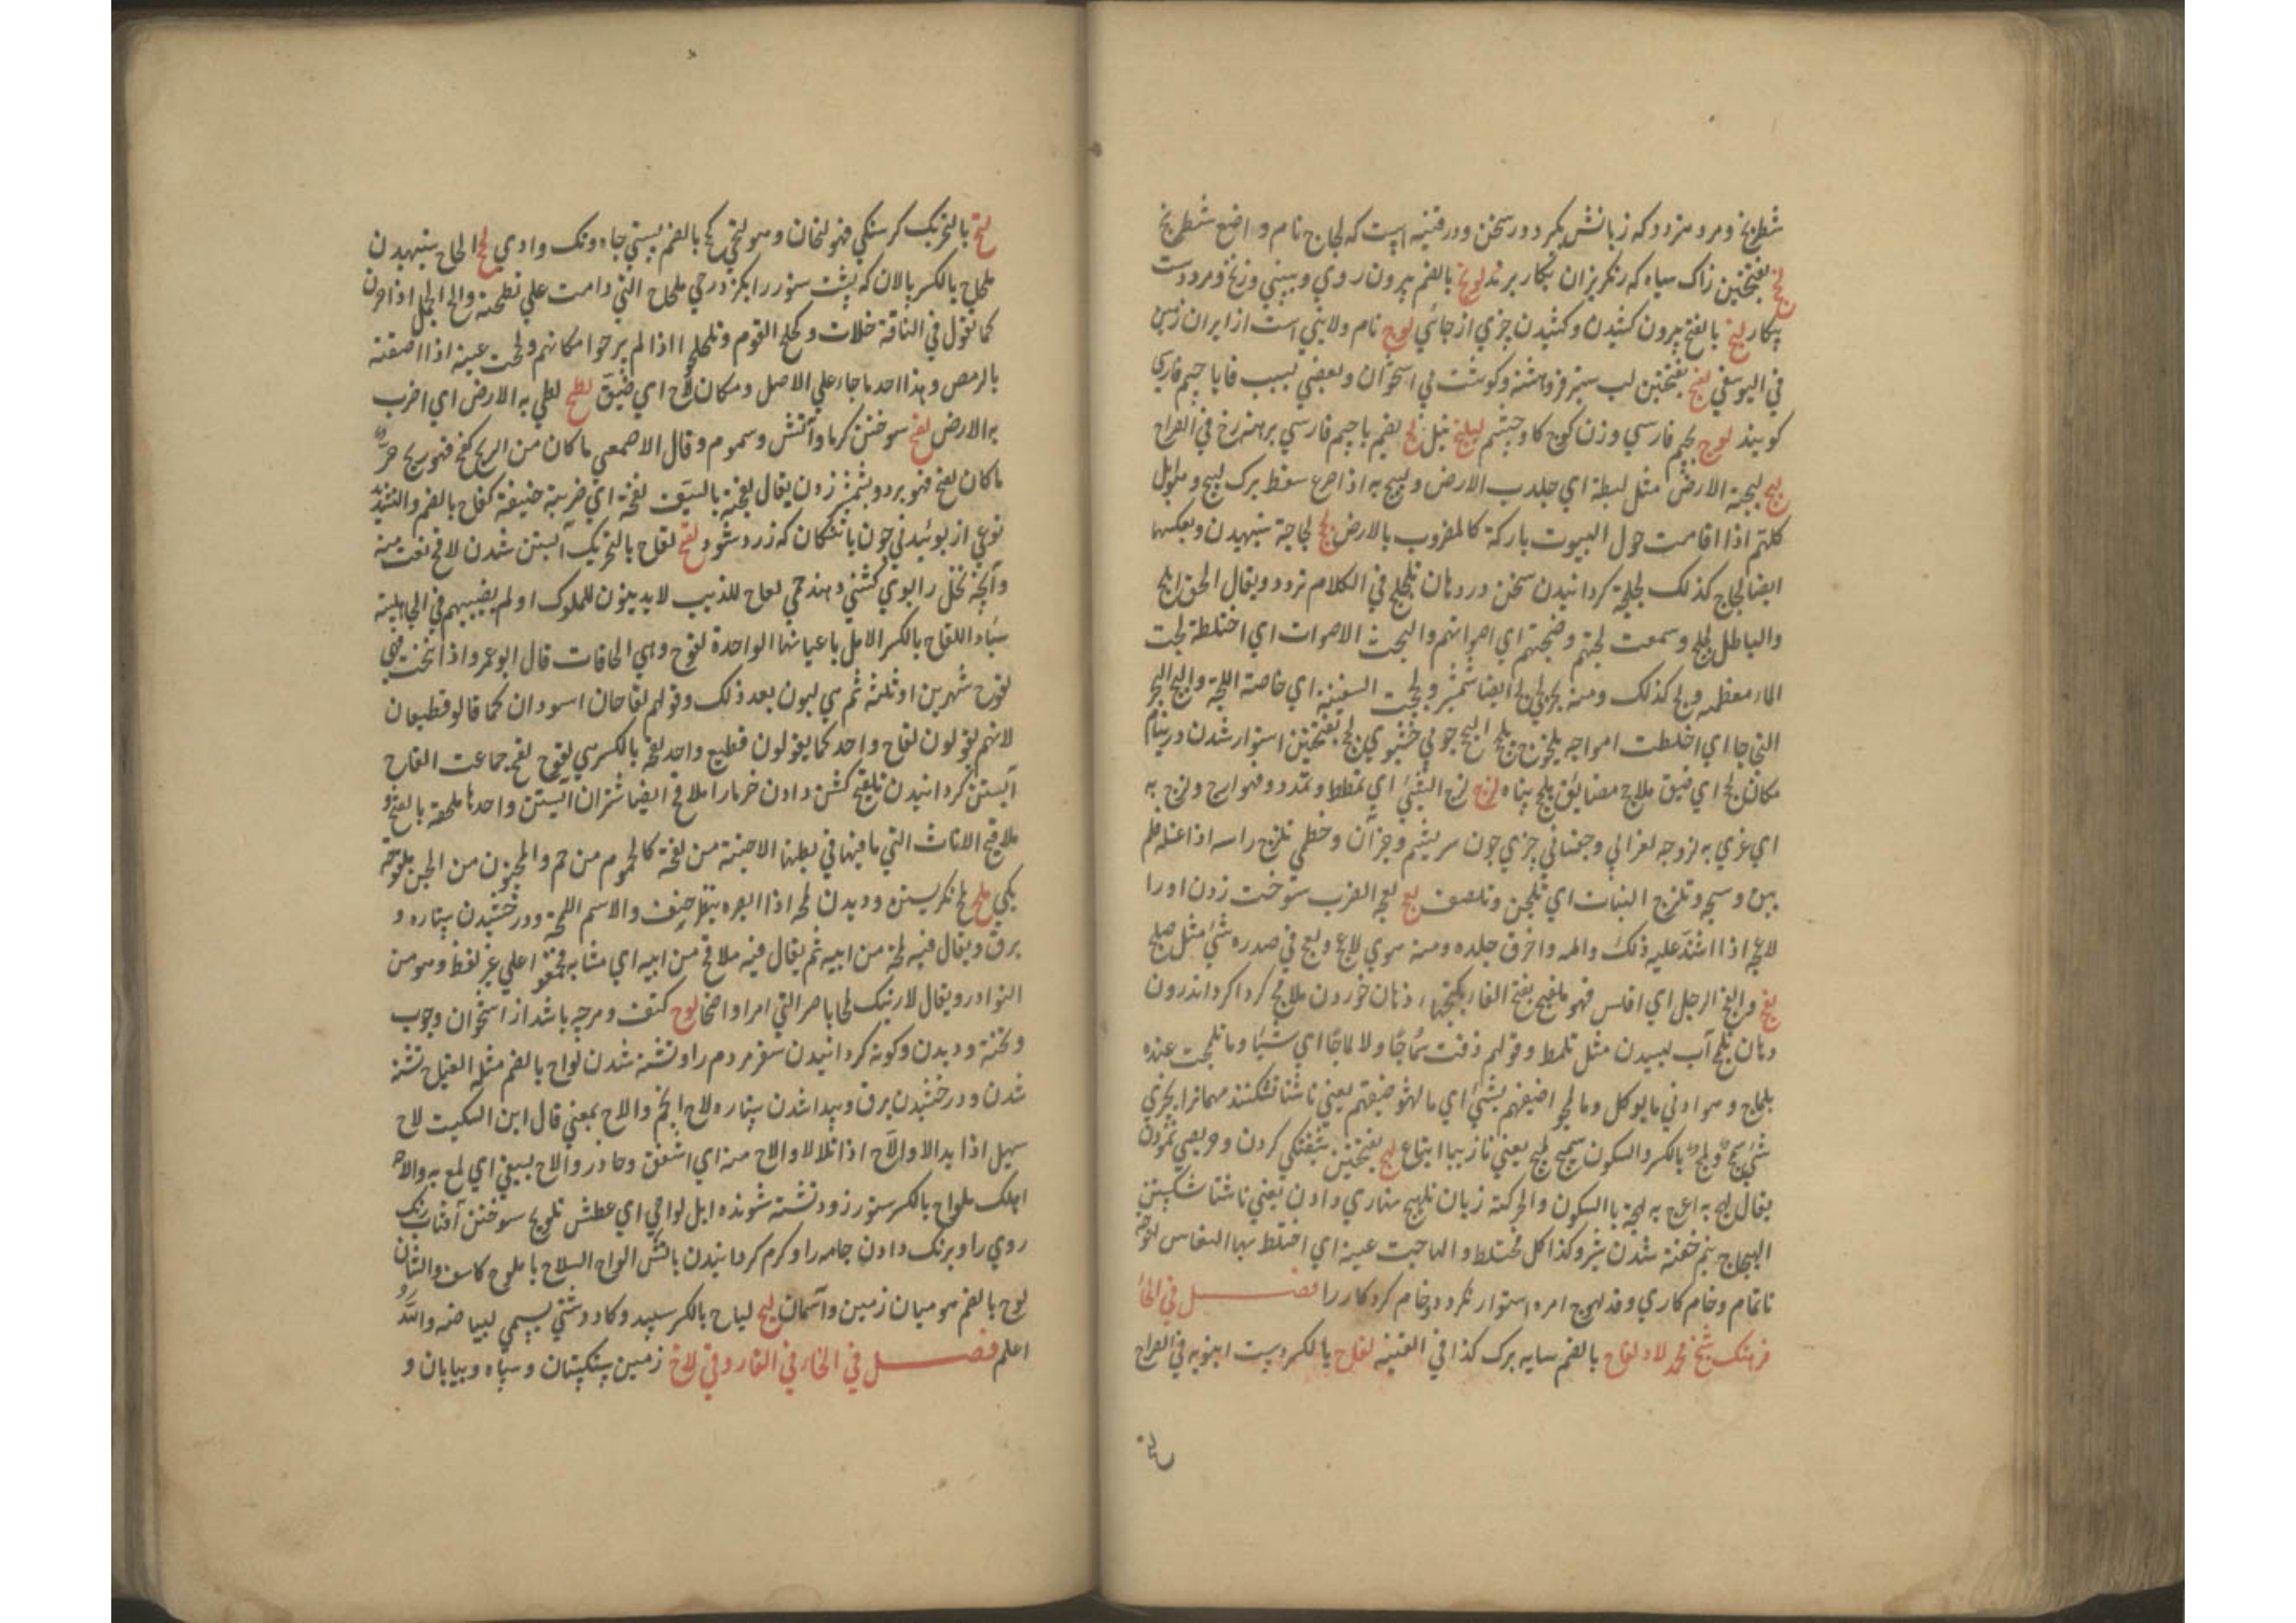 شطرنج و مرد متردد که زبانش بگیرد در سخن و در قنیه است که لجاج نام واضع شطرنج
لخج بفتحتین زاک سیاه که رنگریزان بکار برند لونج بالضم بیرون روی و بینی و زنخ و مرد دست
بیکار لنج بالفتح بیرون کشیدن و کشیدن چیزی از جائی لوج نام ولایتی است از ایران زمین
فی الیوسفی لفج بفتحتین لب ستبر فروهشته و گوشت بی استخوان و بعضی بسبب فا با جیم فارسی
گویند لوج بجیم فارسی وزن کوج کاوچشم لیلنج نیل لج بضم با جیم فارسی برهنه رخ فی الصراح
لبج لبجة الارض مثل لبطه ای جلدب الارض و لبج به اذا صرع سقط برک لبیج و هو ابل
کلهم اذا اقامت حول البیوت بارکة کالمضروب بالارض لجج لجاجة ستیهیدن و بعکسها
ایضا لجاج کذلک لجلجة گردانیدن سخن در دهان تلجلج فی الکلام تردد و یقال الحق ابلج
والباطل لجلج و سمعت لجتهم و ضجتهم ای اصواتهم والتجت الاصوات ای اختلطت لجت
الماء معظمه و لج کذلک و منه بحر لجی لج ایضا شمشیر و لججت السفینة ای خاصت اللجة والتج البحر
التجاجا ای اختلطت امواجه یلنجوج یلنجج النجج جوب خشبوی لحج بفتحتین استوار شدن در نیام
مکان لحج ای ضیق ملاحج مضائق ملحج پناه لزج لزج الشئ ای تمطط و تمدد و هو لزج و لزج به
ای غری به لزوجة لغزانی و چفسانی چیزی چون سریشم و جز آن و خطمی تلزج راسه اذا غسله فلم
ینق وسخه و تلزج النبات ای تلجن و تلصق لعج لعجه الضرب سوخت زدن او را
لاعجه اذا اشتد علیه ذلک والمه و احرق جلده و منه هوی لاعج و لعج فی صدره شئ مثل خلج
لفج و الفج الرجل ای افلس فهو ملفج بفتح الفاء لمج بکنج دهان خوردن ملامج کرداکرد اندرون
دهان تلمج آب لیسیدن مثل تلمظ و قولهم ذقت شماجا و لا لماجا ای شیئا و ما تلمجت عنده
بلماج و هو ادنی ما یوکل و ما لمجوا ضیفهم بشئ ای ما لهنوا ضیفهم یعنی ناشتا نشکنند مهمانرا بچیزی
شئ سمج لمج بالکسر والسکون سمیج لمیج یعنی نازیبا اتباع لهج بفتحتین شیفتگی کردن و حریصی نمودن
یقال لهج به اغری به لهجة بالسکون والحرکة زبان تلهیج نهاری دادن یعنی ناشتا شکستن
الهیجاج نیم خفته شدن شیر و کذا کل مختلط و الهاجت عینه ای اختلط بها النعاس لهوجة
ناتمام و خام کاری و قد لهوج امره استوار نکرد و خام کرد کار را فصل فی الحاء
فرهنک شیخ محمد لاد لفاح بالضم سایه برک کذا فی القنیه لقاح بالکسر دست انبویه فی الصراح
لتح
لتح بالتحریک کرسنگی فهو لتحان و هو لتحی لحج بالضم پستی چاه و تک وادی لحح الحاح ستیهیدن
ملحاح بالکسر پالان که پشت ستور را بکزد رحی ملحاح التی دامت علی تطحنه و الح الجمل اذا حرن
کما تقول فی الناقة خلات و لحلح القوم و تلحلحوا اذا لم یبرحوا مکانهم و لحت عینه اذا التصقت
بالرمص و هذا احد ما جاء علی الاصل و مکان لاح ای ضیق لطح لطح به الارض ای ضرب
به الارض لفح سوختن کرما و آتش و سموم و قال الاصمعی ما کان من الریح لفح فهو ریح حر و
ما کان نفح فهو برد و بشمشیر زدن یقال لفحته بالسیف لفحة ای ضربته خفیفة لفاح بالضم والتشدید
نوعی از بوئیدنی چون باتنکان که زرد شود لقح لقاح بالتحریک آبستن شدن لاقح نعت منه
و آنچه نخل را بوی کشنی دهند حی لقاح للذین لا یدینون للملوک او لم یصبهم فی الجاهلیة
سباء اللقاح بالکسر الابل باعیانها الواحدة لقوح و هی الحلوبات قال ابو عمرو اذا نتجت فهی
لقوح شهرین او ثلثة ثم هی لبون بعد ذلک و قولهم لقاحان اسودان کما قالوا قطیعان
لانهم یقولون لقاح واحد کما یقولون قطیع واحد لقحة بالکسر هی لقوح لقح جماعت القاح
آبستن گردانیدن تلقیح کشن دادن خرما را ملاقح ایضا شتران آبستن واحدها ملقحة بالفتح و
ملاقیح الاناث التی ما فیها فی بطنها الاجنة من لقحة کالمحموم من حم و المجنون من الجن ملقوحة
یکی لمح لمح نکریستن و دیدن لمحه اذا ابصره بنظر خفیف والاسم اللمحة و درخشیدن ستاره و
برق و یقال فیه لمحة من ابیه ثم یقال فیه ملامح من ابیه ای مشابه فجمعوا علی غیر لفظ و هو من
النوادر و یقال لارینک لمحا باصرا التی امرا واضحا لوح کتف و هرچه باشد از استخوان و چوب
و تخته و دیدن و گونه گردانیدن سفر مردم را و تشنه شدن لواح بالضم مثله الفعل تشنه
شدن و درخشیدن برق و پیدا شدن ستاره لاح النجم و الاح بمعنی قال ابن السکیت لاح
سهیل اذا بدا الا والاح اذا تلالا و الاح منه ای اشفق و حاذر و الاح بسیفه ای لمع به و الاحه
اهلکه ملواح بالکسر ستور زود تشنه شونده ابل لواحی ای عطش تلویح سوختن آفتاب رنک
روی را و برنک دادن جامه را و کرم کردانیدن باتش الواح السلاح ما یلوح کالسیف والسنان
لوح بالضم هو میان زمین و آسمان لیح لیاح بالکسر سپید و کاو دشتی یسمی لبیاضه والله
اعلم فصل فی الخاء فی الفارسی لاخ زمین سنکستان و سیاه و بیابان و